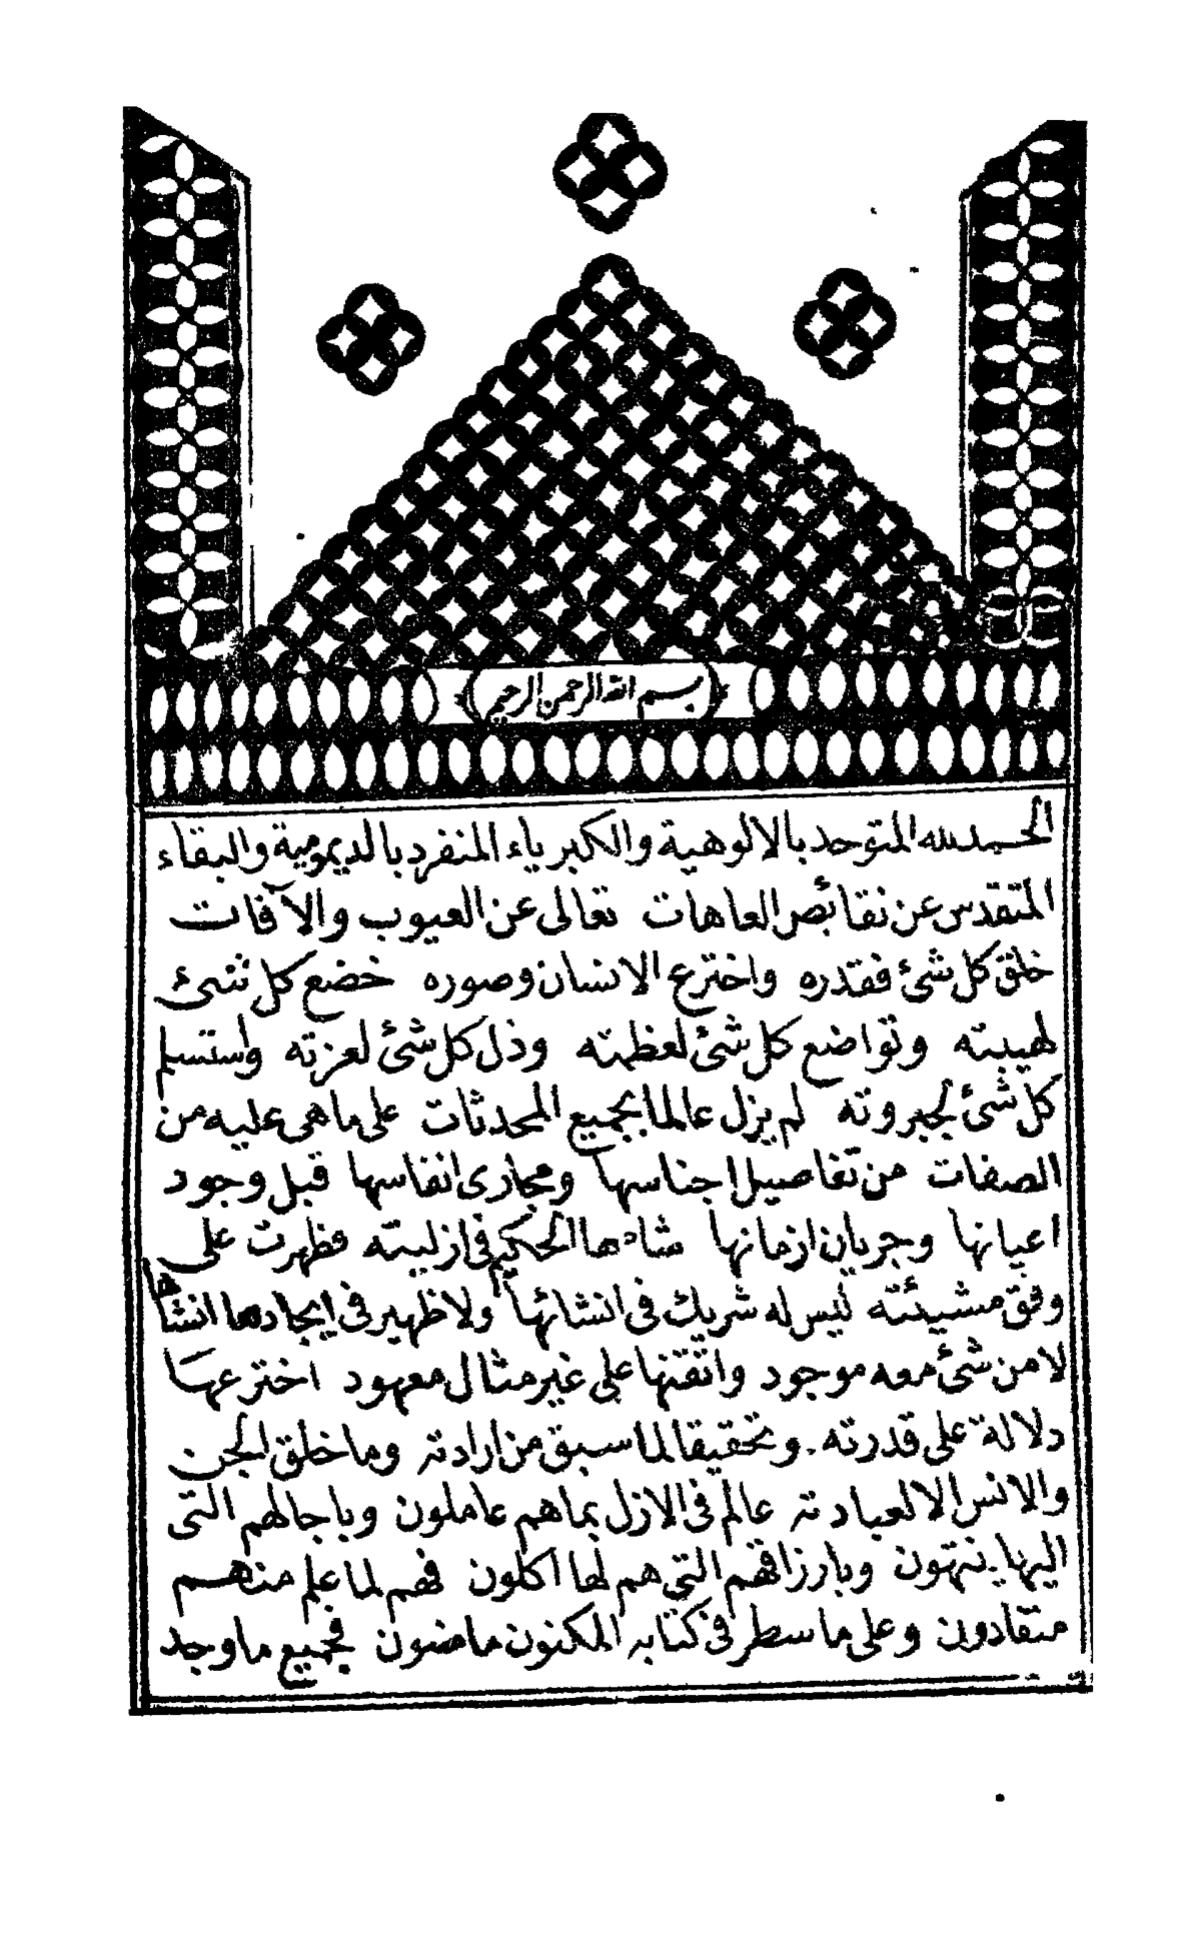 بسم الله الرحمن الرحيم
الحمد لله المتوحد بالالوهية والكبرياء المنفرد بالديمومية والبقاء
المتقدس عن نقائص العاهات تعالى عن العيوب والآفات
خلق كل شئ فقدره واخترع الانسان وصوره خضع كل شئ
لهيبته وتواضع كل شئ لعظمته وذل كل شئ لعزته واستسلم
كل شئ لجبروته لم يزل عالما بجميع المحدثات على ما هى عليه من
الصفات من تفاصيل اجناسها ومجارى انفاسها قبل وجود
اعيانها وجريان ازمانها شاءها الحكيم فى ازليته فظهرت على
وفق مشيئته ليس له شريك فى انشائها ولا ظهير فى ايجادها انشأها
لا من شئ معه موجود واتقنها على غير مثال معهود اخترعها
دلالة على قدرته. وتحقيقا لما سبق من ارادته وما خلق الجن
والانس الا لعبادته عالم فى الازل بما هم عاملون وباجالهم التى
اليها ينتهون وبارزاقهم التى هم لها اكلون فهم لما علم منهم
منقادون وعلى ما سطر فى كتابه المكنون ماضون فجميع ما وجد